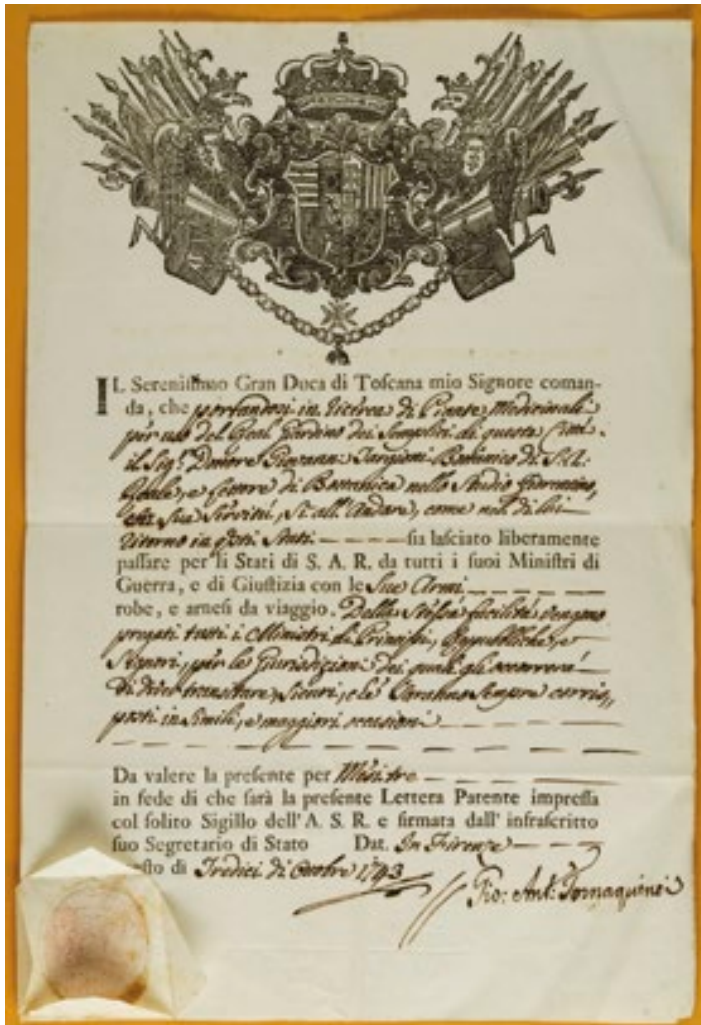 IL Serenissimo Gran Duca di Toscana mio Signore coman-
da, che portandosi in Ricerca di Piante Medicinali
per uso del Real Giardino dei Semplici di questa Città
il Sig.r Dottore Giovanni Targioni Bottanico di S. A.
Reale, e Lettore di Bottanica nello Studio Fiorentino,
Sua Servitù, sì all'andare, come nel di lui
ritorno in questi Stati - - - - sia lasciato liberamente
passare per li Stati di S. A. R. da tutti i suoi Ministri di
Guerra, e di Giustizia con le Sue Armi
robe, e arnesi da viaggio. Della Stessa facilità vengono
pregati tutti i Ministri di Principi, Repubbliche, e
Signori, per le Giurisdizioni dei quali gli occorrerà
di dover transitare, sicuri, e le saranno sempre corris,,
posti in simili, e maggiori occasioni
Da valere la presente per Mesi tre
in fede di che sarà la presente Lettera Patente impressa
col solito Sigillo dell'A. S. R. e firmata dall'infrascritto
suo Segretario di Stato Dat. In Firenze
questo di Tredici di Ottobre 1743
Gio: Ant: Tornaquinci